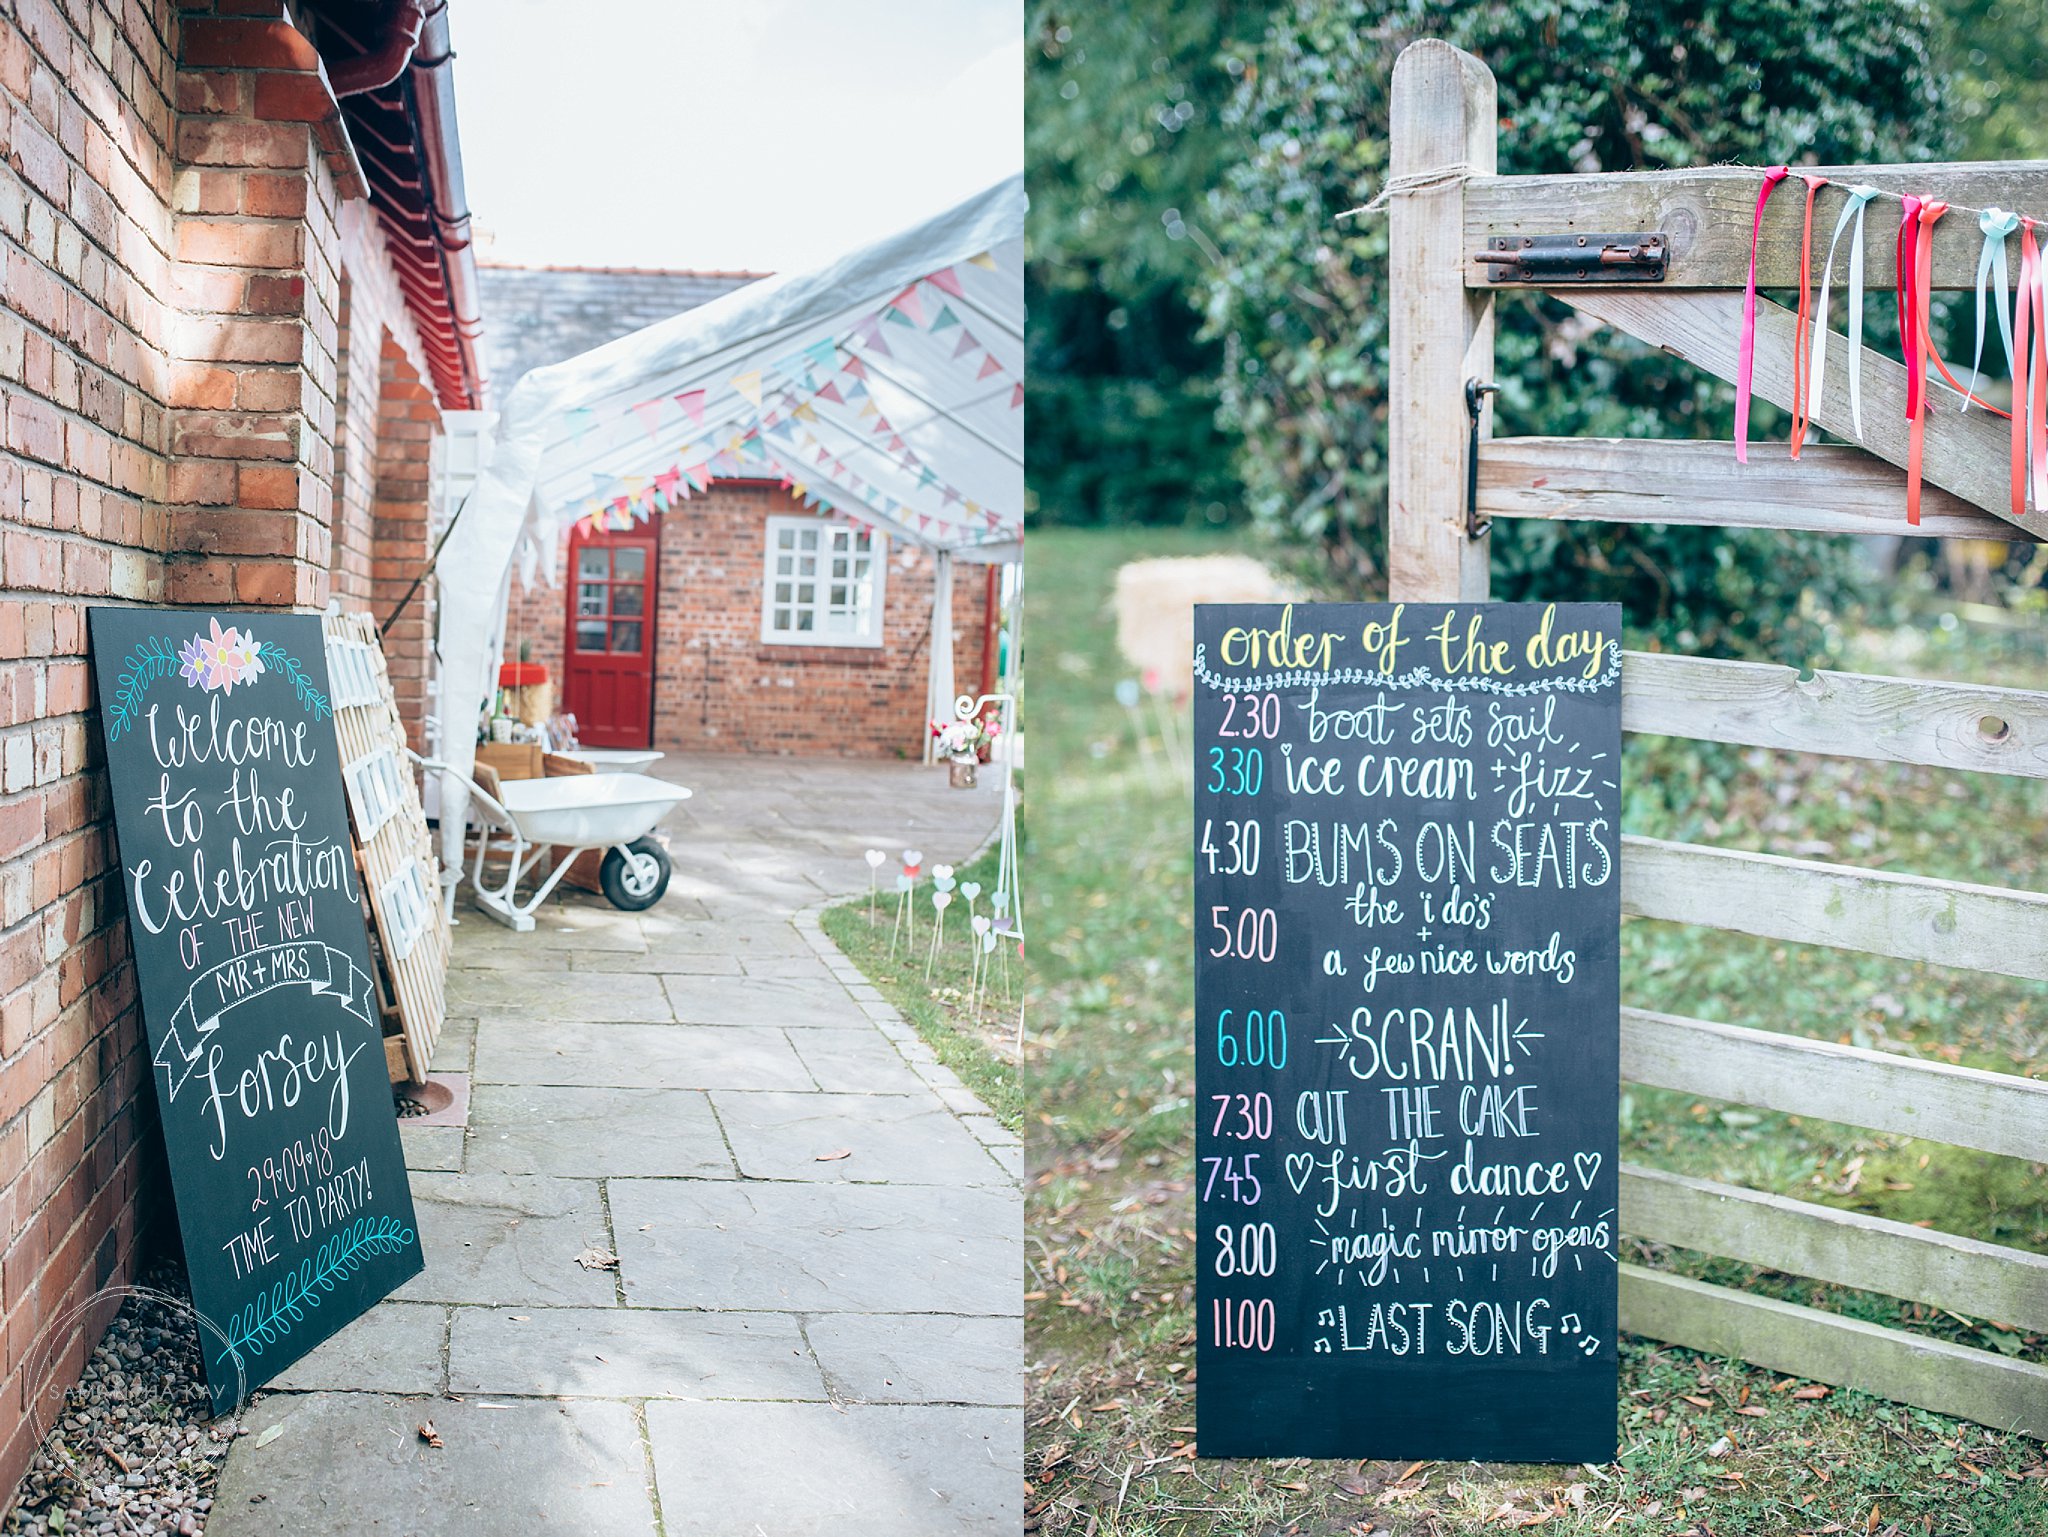 Welcome
to the
Celebration
OF THE NEW
MR + MRS
Forsey
29♥09♥18
TIME TO PARTY!
SAMANTHA KAY
order of the day
2.30 boat sets sail
3.30 ice cream + fizz
4.30 BUMS ON SEATS
5.00 the 'i do's'
+
a few nice words
6.00 SCRAN!
7.30 CUT THE CAKE
7.45 ♡ first dance ♡
8.00 magic mirror opens
11.00 ♫ LAST SONG ♫